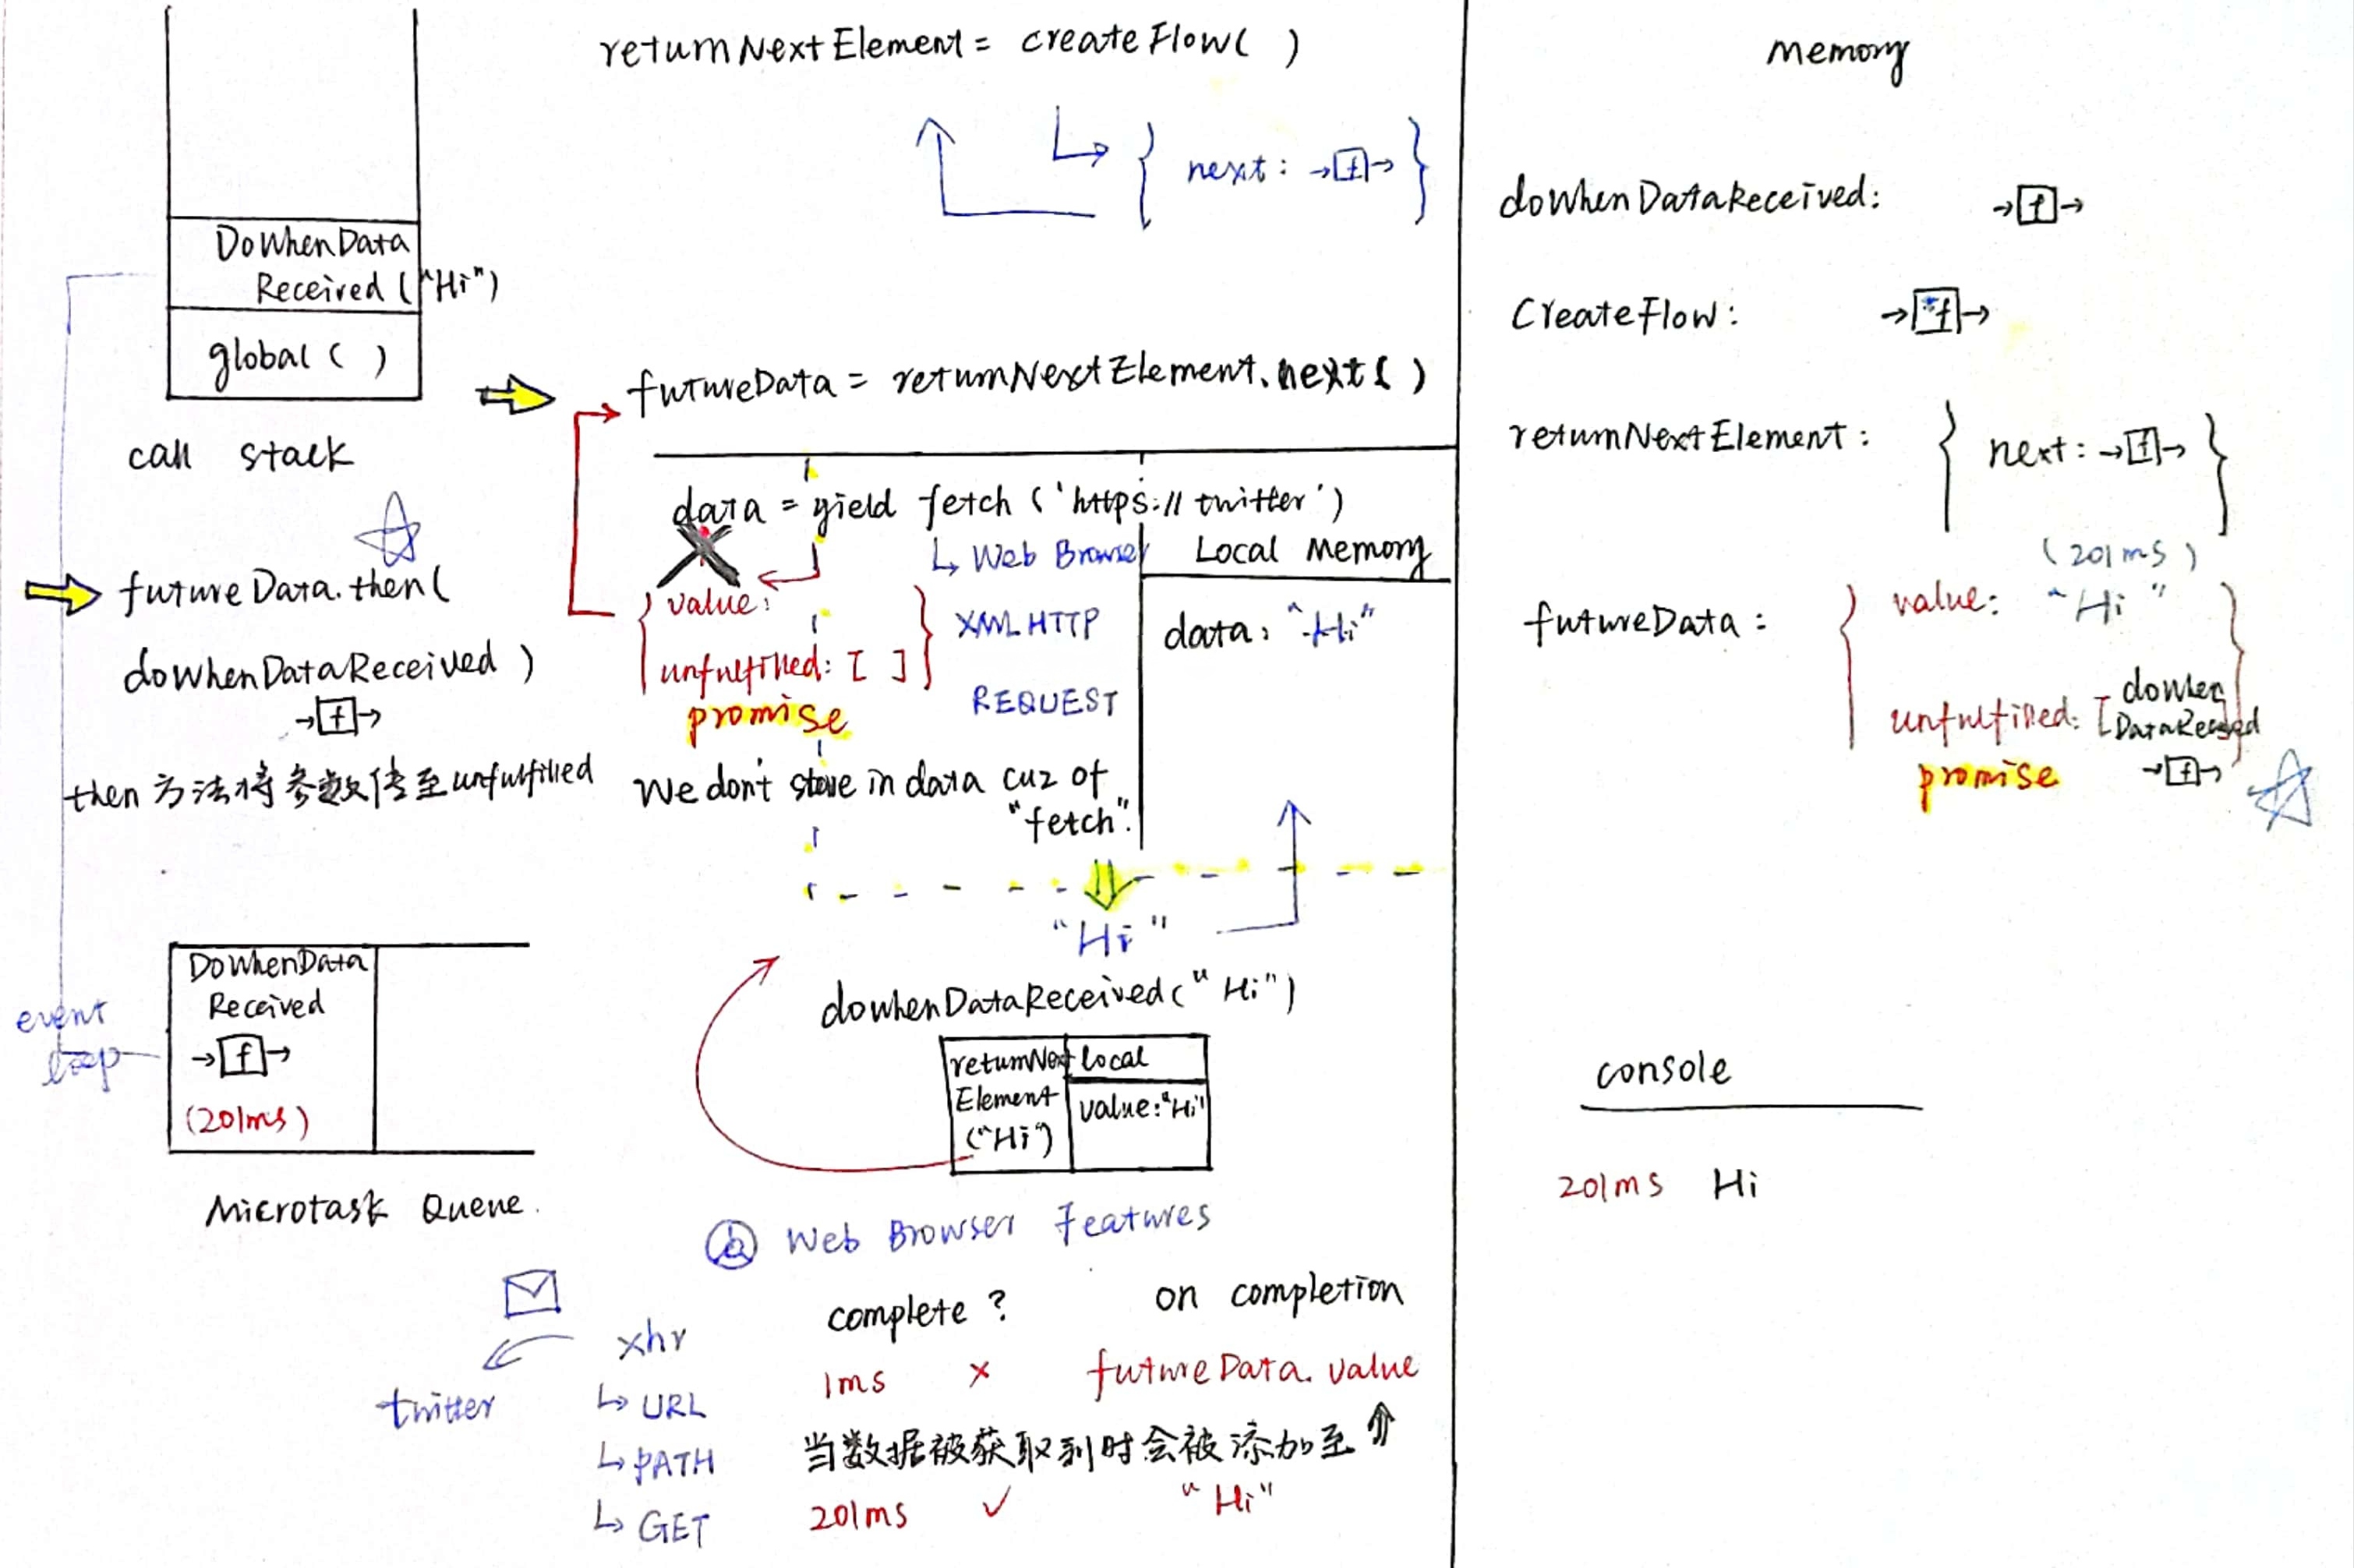 returnNextElement = createFlow( )
{ next: →[f]→ }
DoWhenData
Received ("Hi")
global ( )
call stack
futureData = returnNextElement.next( )
data = yield fetch ('https://twitter')
↳ Web Browser
XML HTTP
REQUEST
Local Memory
data: "Hi"
{ value:
unfulfilled: [ ] }
promise
We don't store in data cuz of
"fetch".
futureData.then(
doWhenDataReceived )
→[f]→
then 方法将参数传至unfulfilled
"Hi"
doWhenDataReceived("Hi")
returnNext
Element
("Hi")
local
value:"Hi"
event
loop
DoWhenData
Received
→[f]→
(201ms)
Microtask Queue.
Web Browser Features
twitter
xhr
↳ URL
↳ PATH
↳ GET
complete ? on completion
1ms × futureData.value
当数据被获取到时会被添加至 ⇑
201ms ✓ "Hi"
Memory
doWhenDataReceived: →[f]→
CreateFlow: →[*f]→
returnNextElement: { next: →[f]→ }
(201ms)
futureData: { value: "Hi"
unfulfilled: [doWhen
DataReceived] }
→[f]→
promise
console
201ms Hi